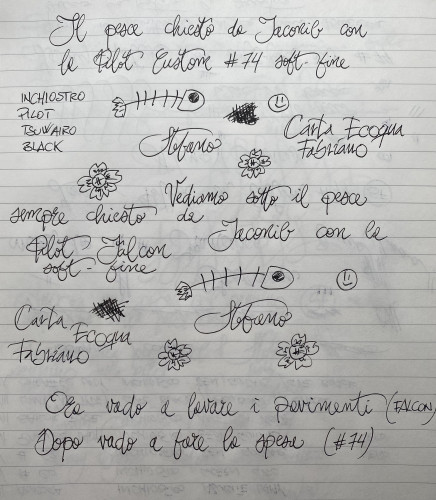 Il pesce chiesto da Iaconib con
la Pilot Custom #74 soft-fine
INCHIOSTRO
PILOT
TSUWAIRO
BLACK
Stefano
Carta Ecoqua
Fabriano
Vediamo sotto il pesce
sempre chiesto da
Iaconib con la
Pilot Falcon
soft-fine
Stefano
Carta Ecoqua
Fabriano
Ora vado a lavare i pavimenti (FALCON)
Dopo vado a fare la spesa (#74)